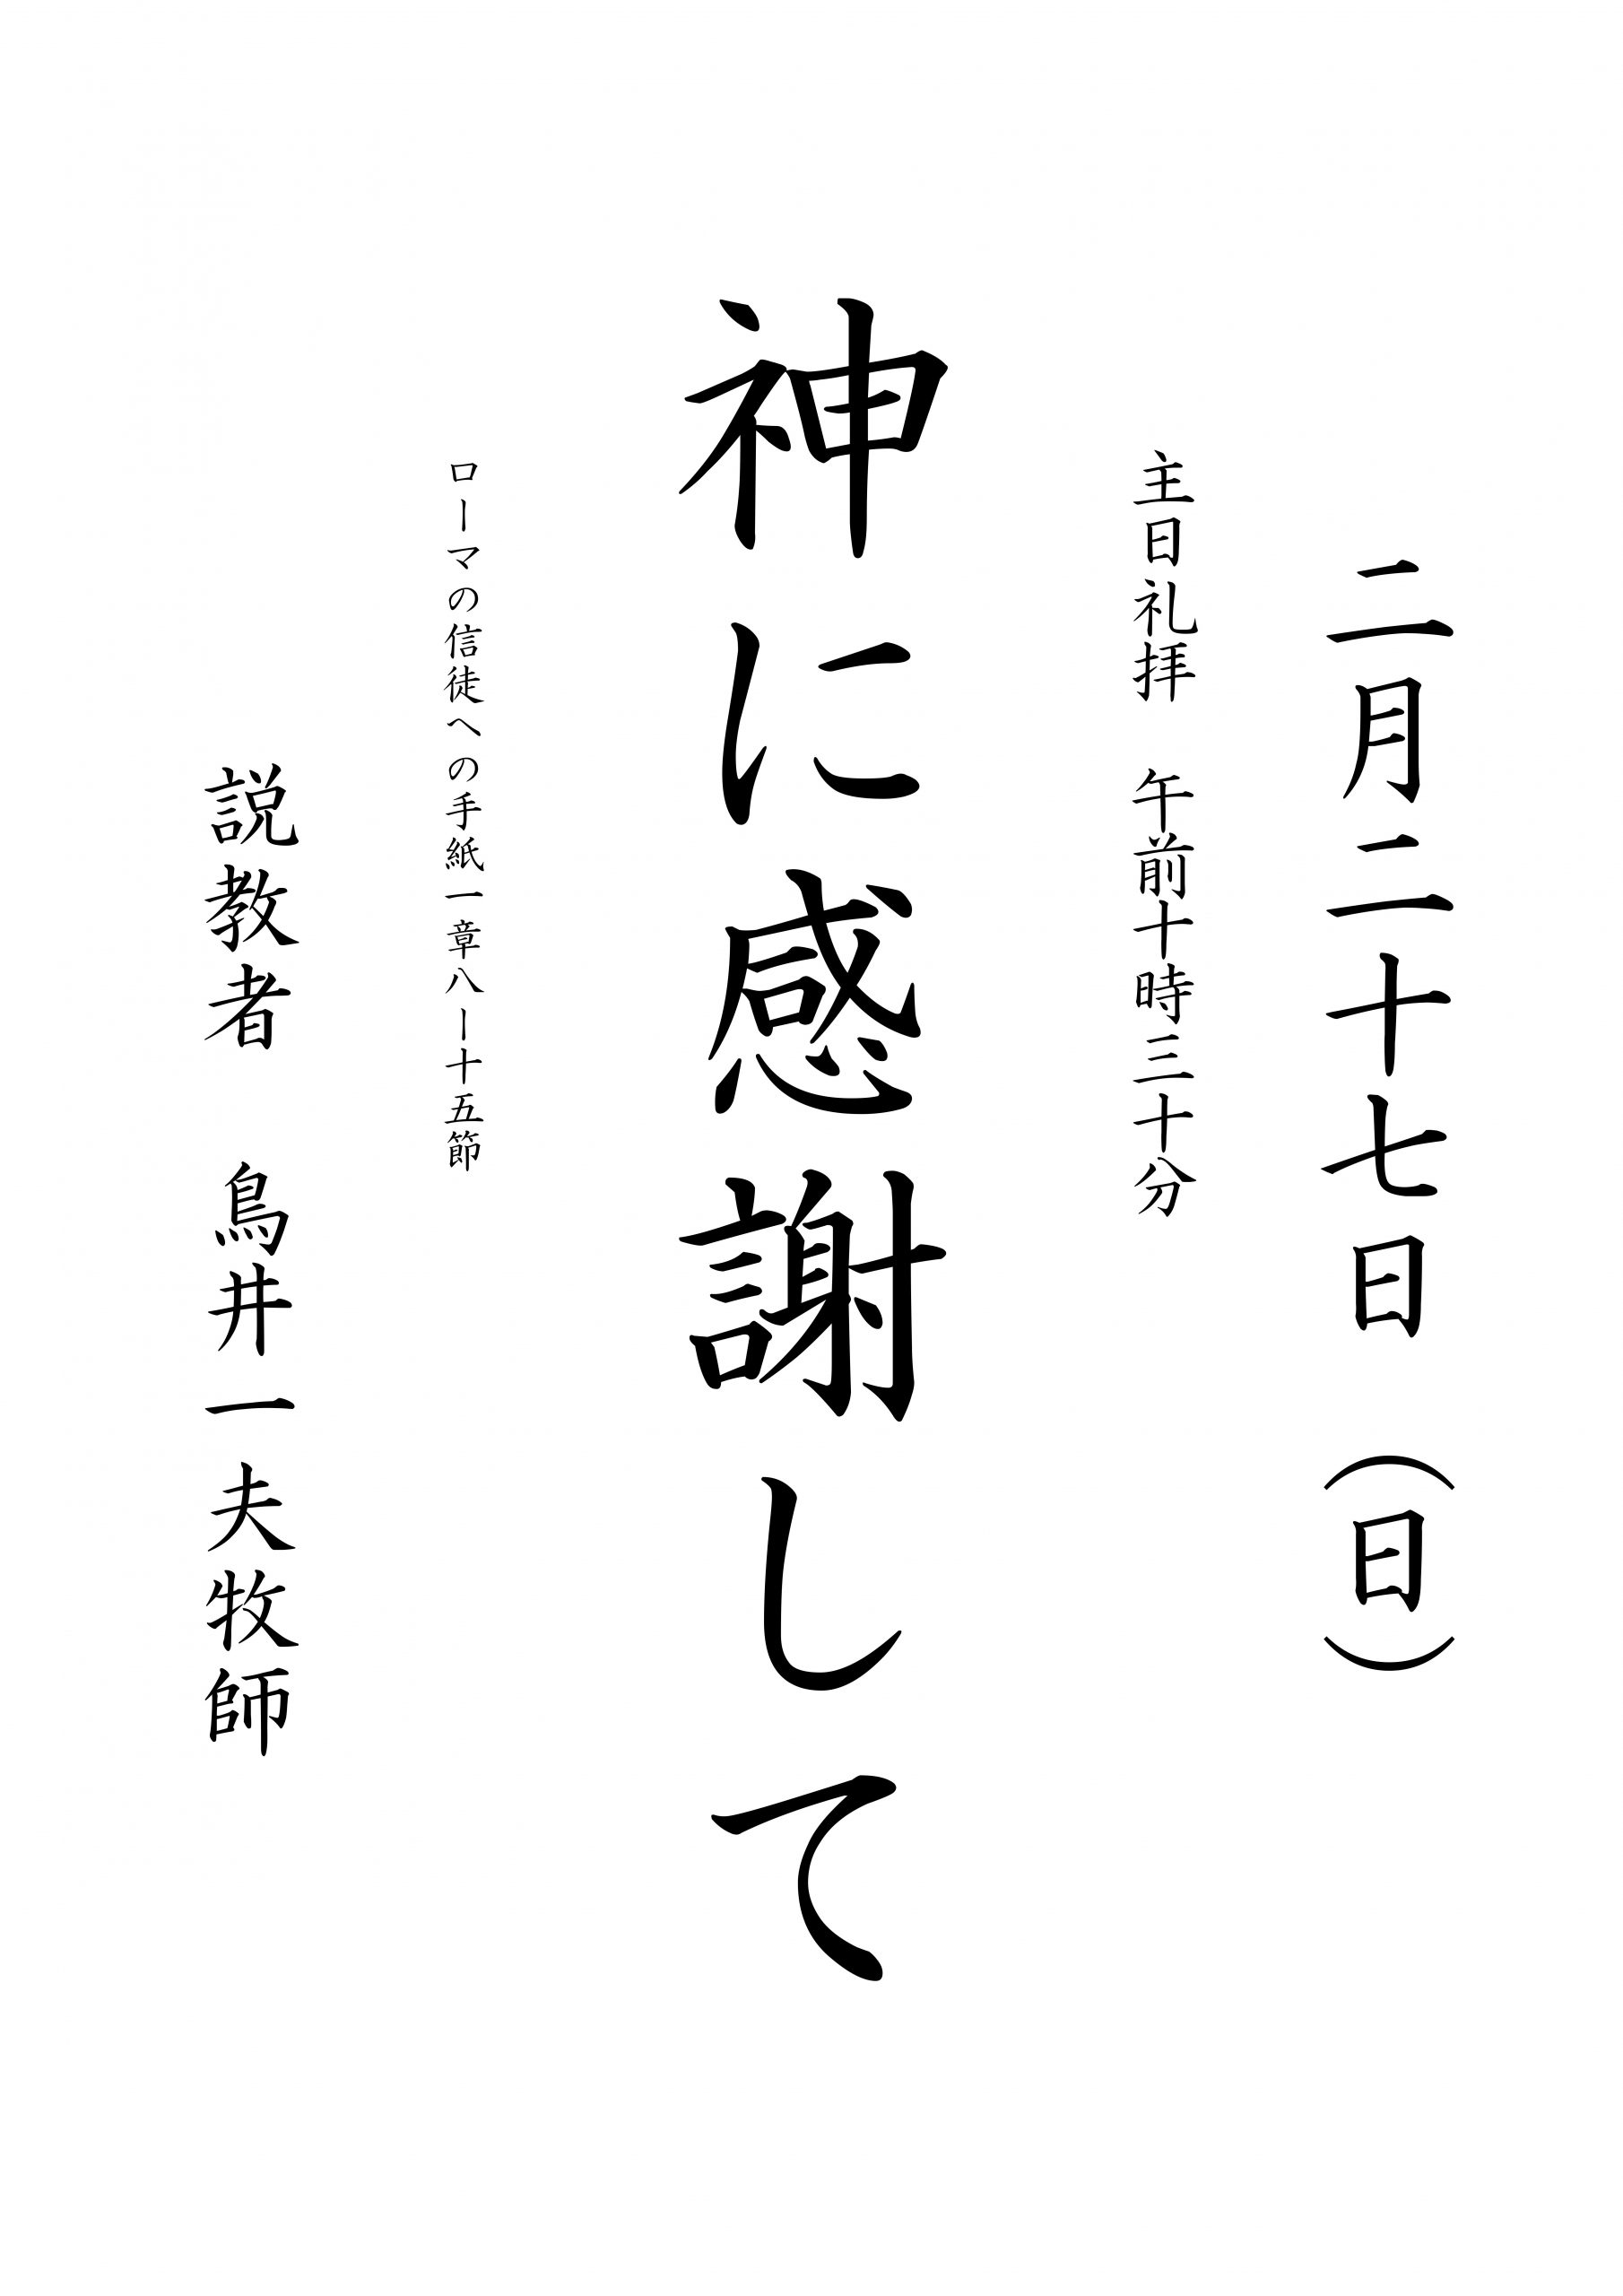 二月二十七日（日）
主日礼拝　午前十時三十分
神に感謝して
ローマの信徒への手紙一章八ー十五節
説教者　鳥井一夫牧師